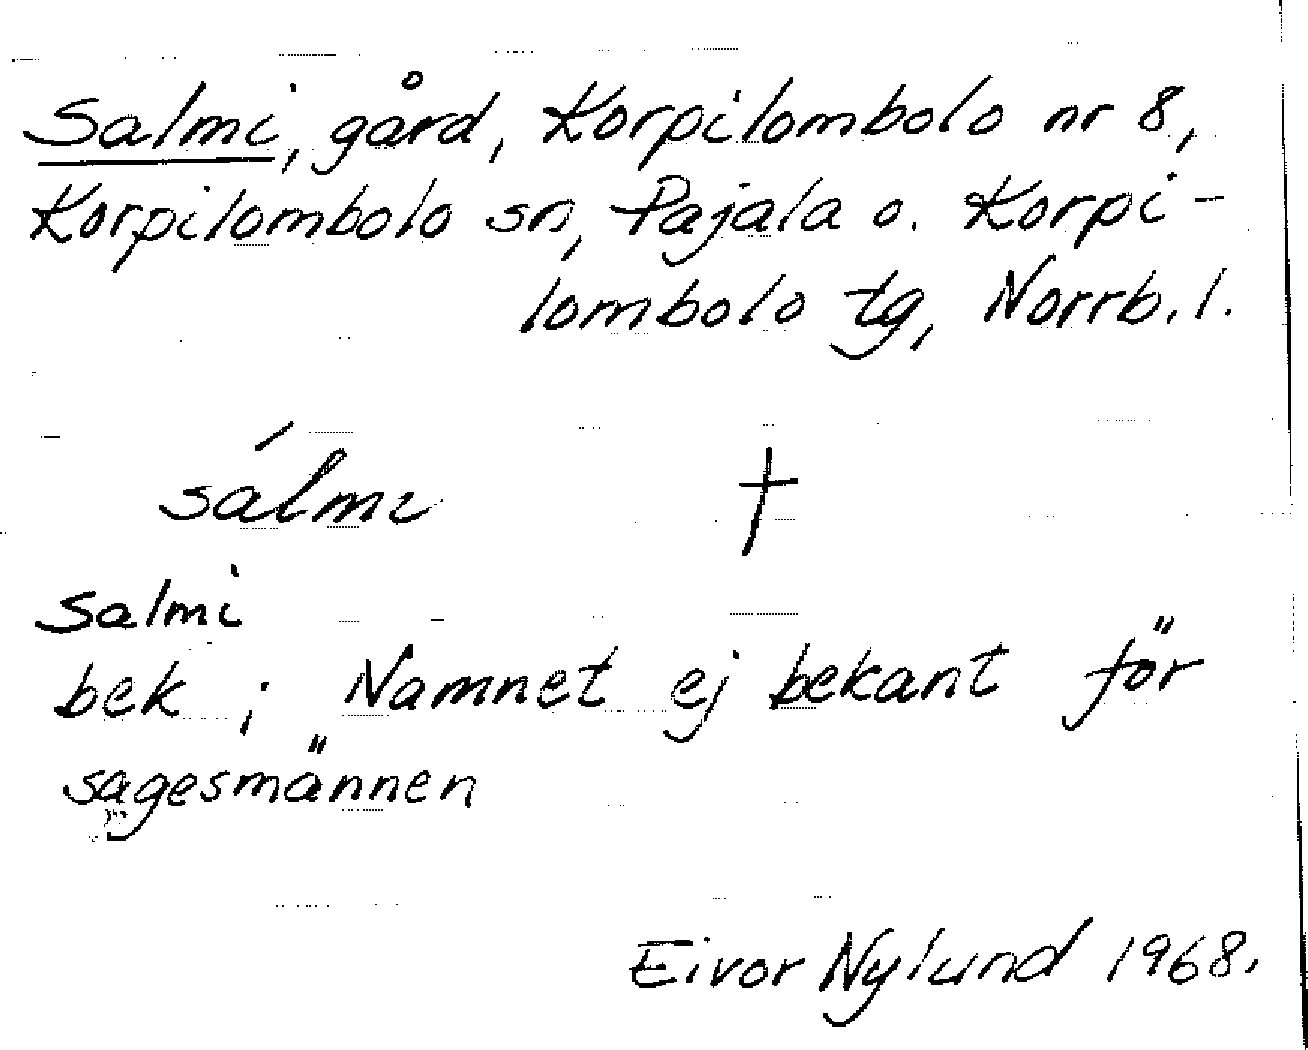 Salmi, gård, Korpilombolo nr 8,
Korpilombolo sn, Pajala o. Korpi-
lombolo tg, Norrb. l.
sálmı †
Salmi
bek ; Namnet ej bekant för
sagesmännen
Eivor Nylund 1968.